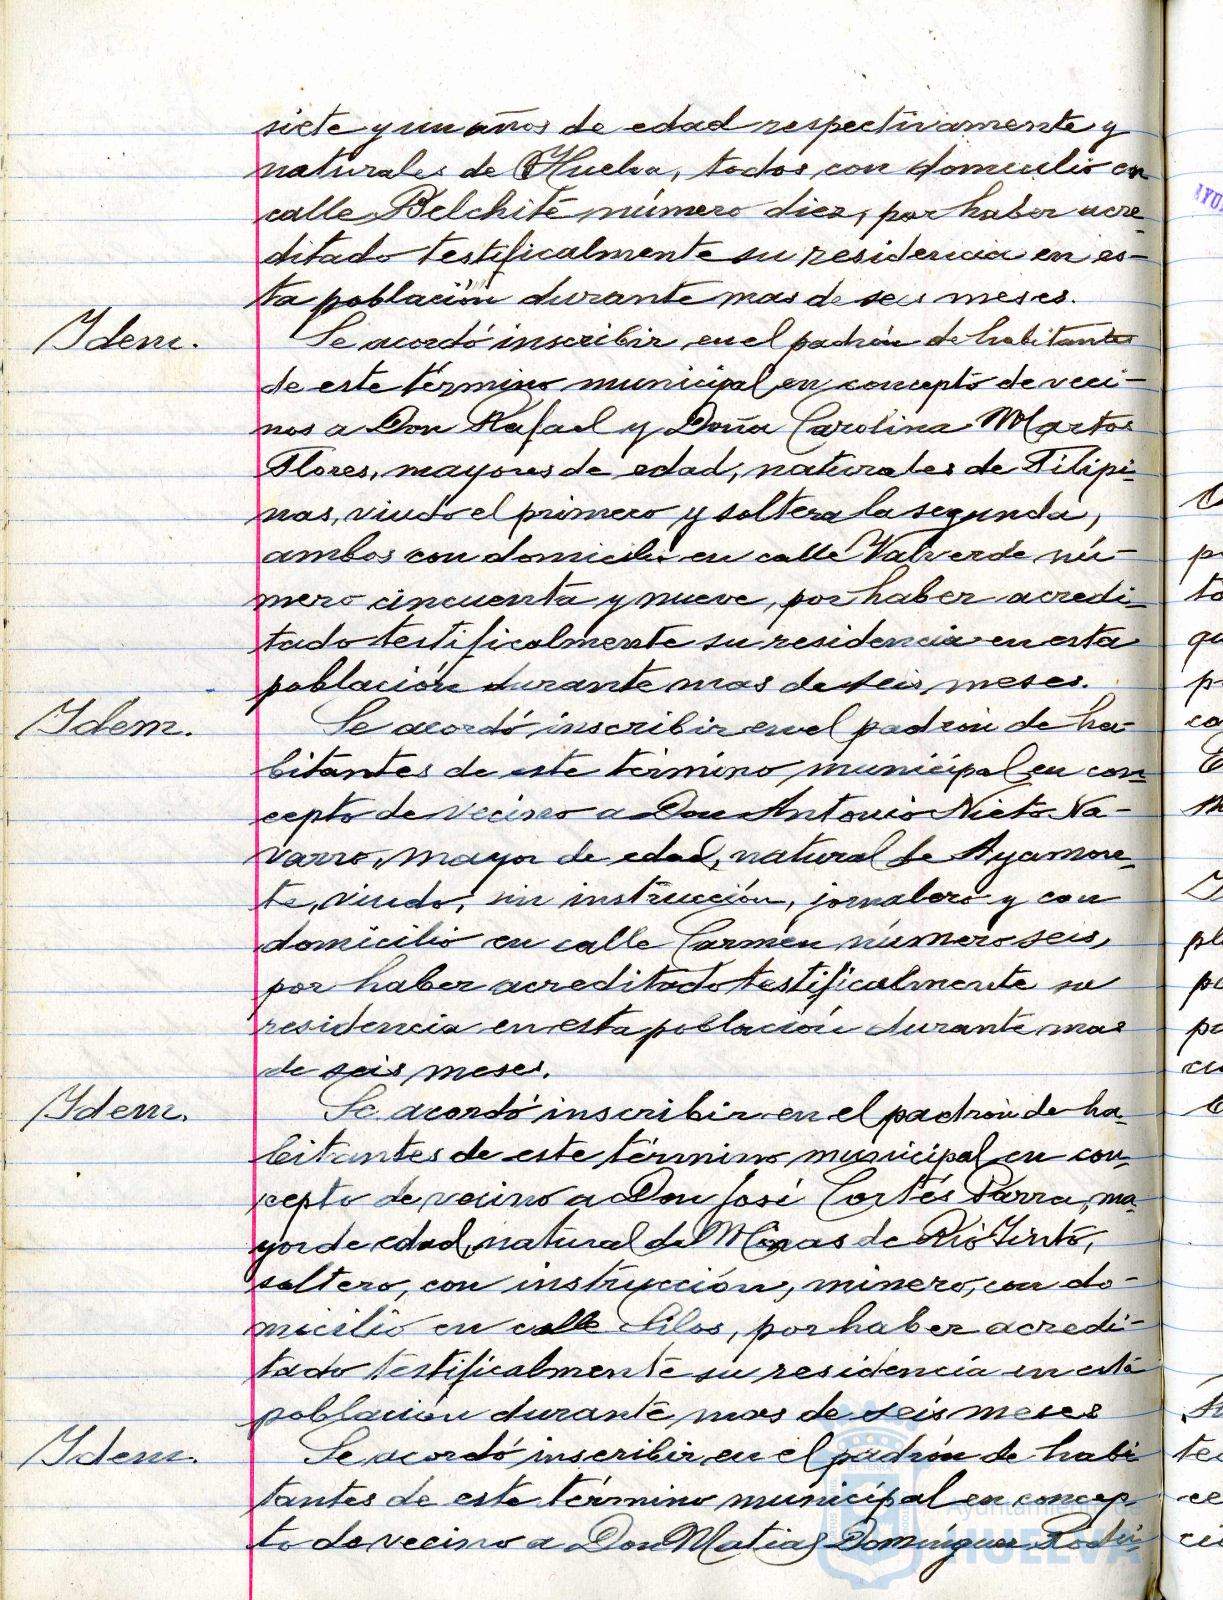 siete y un años de edad respectivamente y
naturales de Huelva, todos con domicilio en
calle Belchite número diez, por haber acre-
ditado testificalmente su residencia en es-
ta población durante mas de seis meses.
Idem. Se acordó inscribir en el padrón de habitantes
de este término municipal en concepto de veci-
nos a Don Rafael y Doña Carolina Martos
Flores, mayores de edad, naturales de Filipi-
nas, viudo el primero y soltera la segunda,
ambos con domicilio en calle Valverde nú-
mero cincuenta y nueve, por haber acredi-
tado testificalmente su residencia en esta
población durante mas de seis meses.
Idem. Se acordó inscribir en el padrón de ha-
bitantes de este término municipal en con-
cepto de vecino a Don Antonio Nieto Na-
varro, mayor de edad, natural de Ayamon-
te, viudo, sin instrucción, jornalero y con
domicilio en calle Carmen número seis,
por haber acreditado testificalmente su
residencia en esta población durante mas
de seis meses.
Idem. Se acordó inscribir en el padrón de ha-
bitantes de este término municipal en con-
cepto de vecino a Don José Cortés Parra, ma-
yor de edad, natural de Minas de Rio Tinto,
soltero, con instrucción, minero, con do-
micilio en calle Silos, por haber acredi-
tado testificalmente su residencia en esta
población durante mas de seis meses
Idem. Se acordó inscribir en el padrón de habi
tantes de este término municipal en concep
to de vecino a Don Matias Domínguez Rodri
Ayuntamiento de
HUELVA